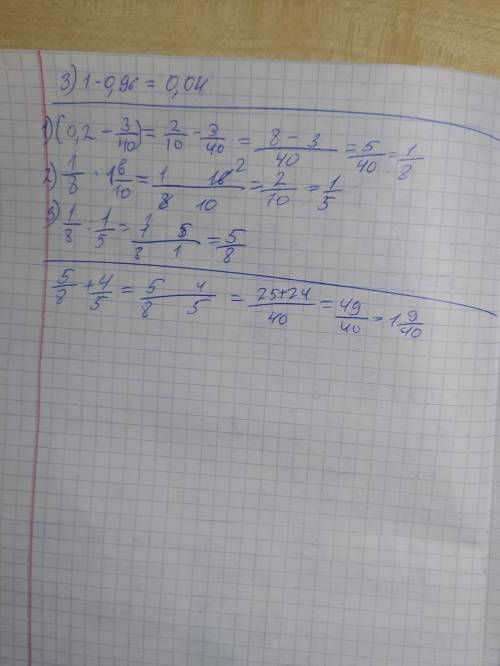 3) 1-0,96 = 0,04
1) (0,2 - 3/40) = 2/10 - 3/40 = 8-3/40 = 5/40 = 1/8
2) 1/8 · 1 6/10 = 1 16 2/8 10 = 2/10 = 1/5
3) 1/8 : 1/5 = 1 5/8 1 = 5/8
5/8 + 4/5 = 5 4/8 5 = 25+24/40 = 49/40 = 1 9/40